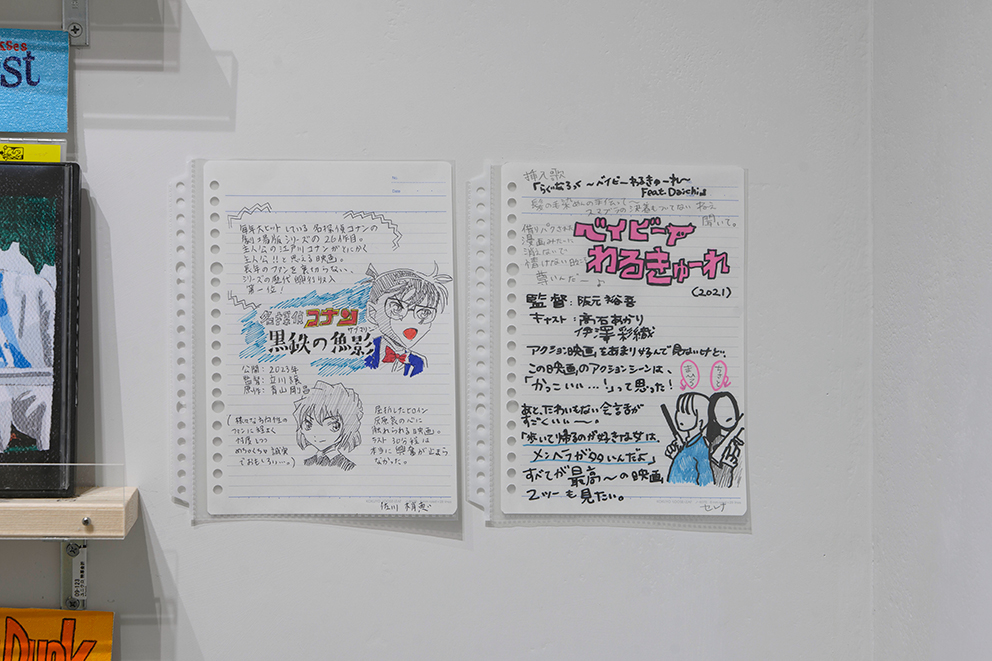 st
Dunk
No.
Date
毎年大ヒットしている名探偵コナンの
劇場版シリーズの26作目。
主人公の江戸川コナンがとにかく
主人公!!と思える映画。
長年のファンを裏切らない、
シリーズの歴代興行収入
第一位!
名探偵コナン
黒鉄の魚影
サブマリン
公開:2023年
監督:立川譲
原作:青山剛昌
ファンに程よく
忖度しつつ
めちゃくちゃ誠実
でおもしろい…。)
灰原哀の心に
触れられる映画。
ラスト30分程は
本当に興奮が止まら
なかった。
挿入歌
「らぐなろっく ~ベイビーわるきゅーれ~
Feat.Daichi」
聞いて。
借りパクされた
漫画みたいに
消えないで
ベイビー
わるきゅーれ
(2021)
監督:阪元裕吾
キャスト:髙石あかり
伊澤彩織
アクション映画、をあまり好んで見ないけど…
この映画のアクションシーンは、
「かっこいい…!」って思った!
まひろ
ちさと
あと、たわいもない会話が
すごくいい~。
「歩いて帰るのが好きな女は、
メンヘラが多いんだよ」
すべてが最高~の映画
2ツーも見たい。
セレナ